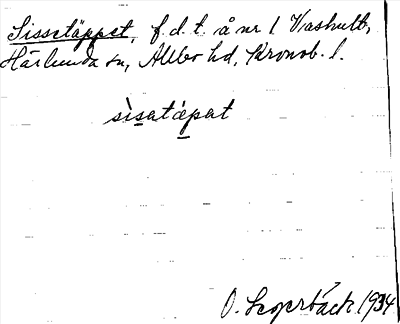 Sissetäppet, f. d. t. å nr 1 Vashult,
Härlunda sn, Allbo hd, Kronob. l.
sisatäpat
O. 1934